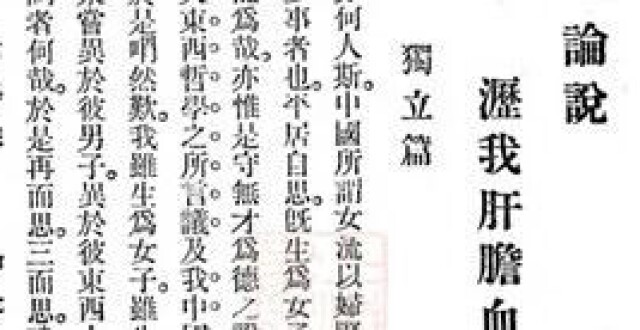 論說
瀝我肝膽血
獨立篇
何人斯。中國所謂女流以婦
事者也。平居自思。旣生爲女子
爲哉。亦惟是守無才爲德之
東西哲學之所言議及我中國
於是喟然歎。我雖生爲女子。雖生
嘗異於彼男子。異於彼東西
者何哉。於是再而思。三而思。